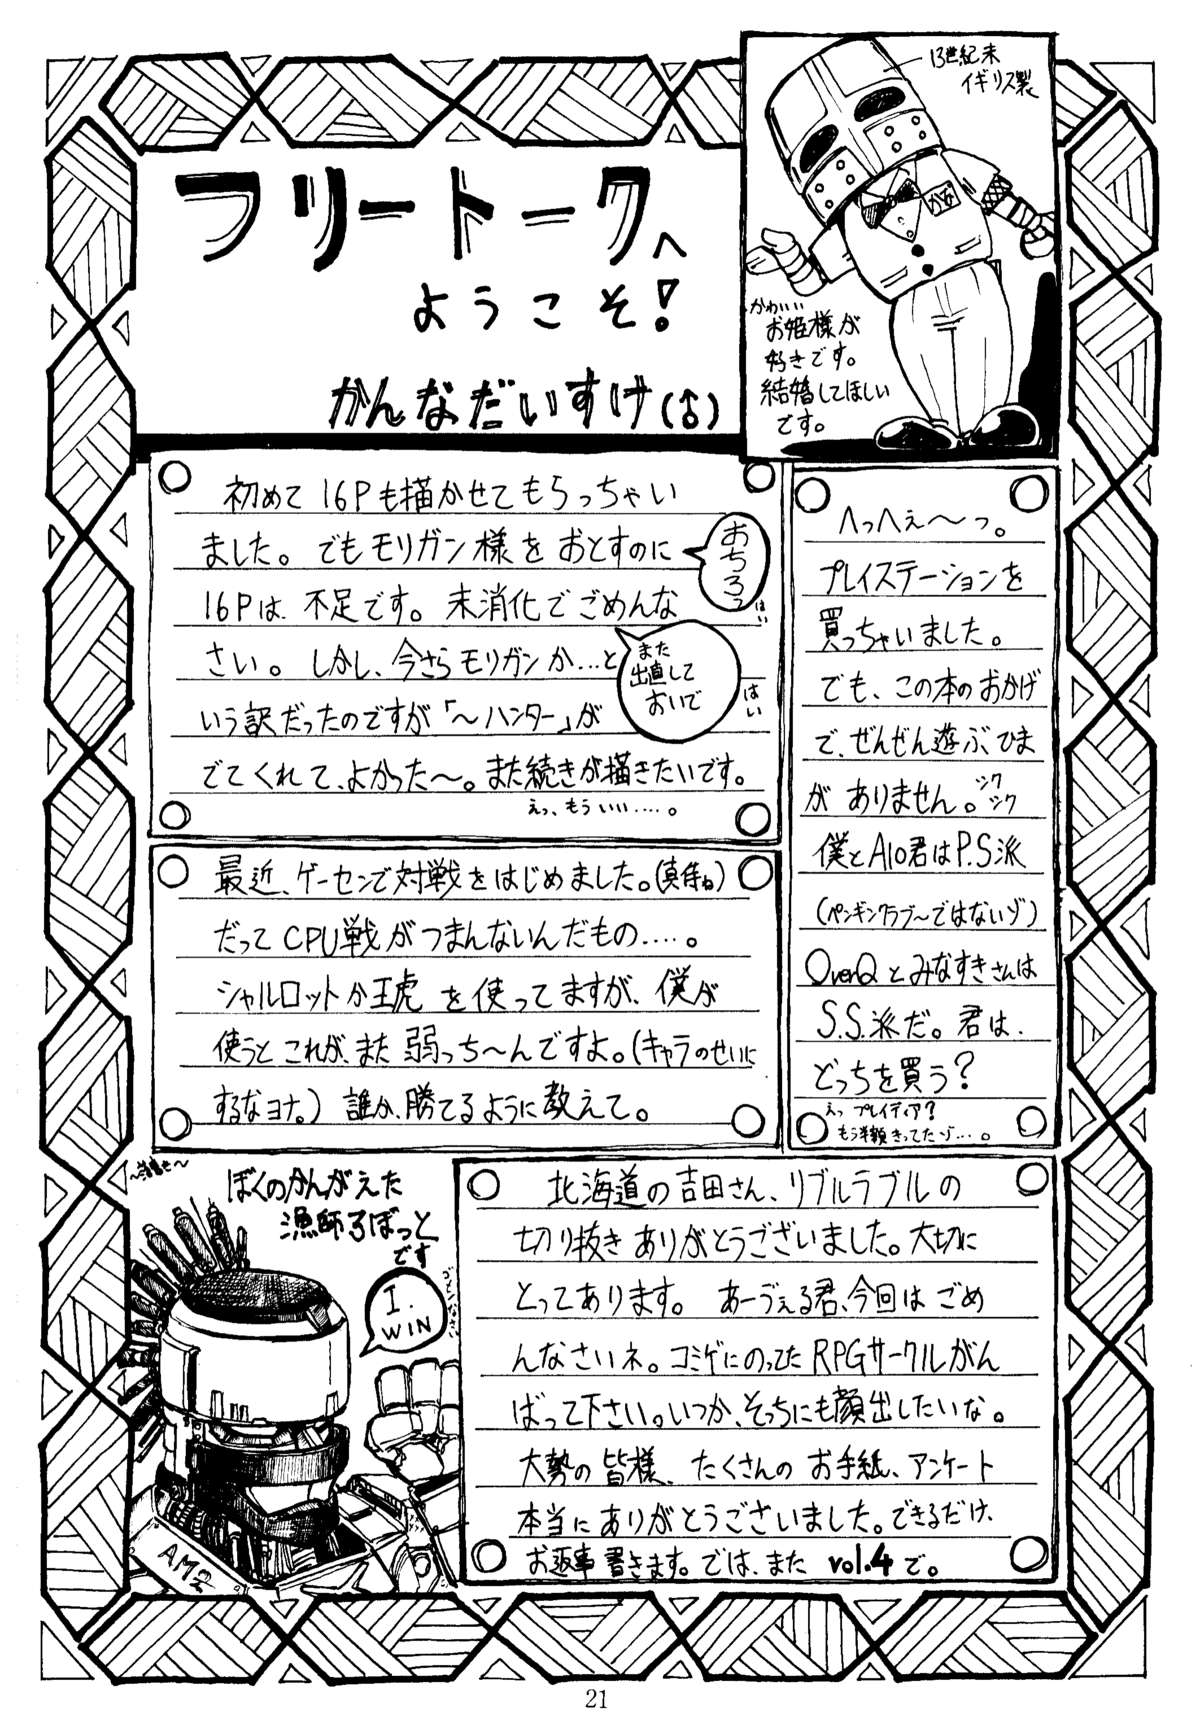 フリートークへ
ようこそ!
かんなだいすけ(♂)
13世紀末
イギリス製
かな
かわいい
お姫様が
好きです。
結婚してほしい
です。
初めて16Pも描かせてもらっちゃい
ました。でもモリガン様をおとすのに
16Pは、不足です。未消化でごめんな
さい。しかし、今さらモリガンか…と
いう訳だったのですが「〜ハンター」が
でてくれて、よかった〜。また続きが描きたいです。
えっ、もういい….。
おちろっ
はい
また
出直して
おいで
はい
へっへぇ〜っ。
プレイステーションを
買っちゃいました。
でも、この本のおかげ
で、ぜんぜん遊ぶ、ひま
がありません。シクシク
僕とAlo君はP.S派
(ペンギンクラブ〜ではないゾ)
OverQとみなすきさんは
S.S.派だ。君は、
どっちを買う?
えっプレイディア?
もう半額きってたゾ…。
最近、ゲーセンで対戦をはじめました。(真侍ね)
だってCPU戦がつまんないんだもの….。
シャルロットか王虎を使ってますが、僕が
使うとこれが、また弱っち〜んですよ。(キャラのせいに
するなヨナ。)誰か、勝てるように教えて。
ぼくのかんがえた
漁師ろぼっと
です
I.
WIN
AM2
北海道の吉田さん、リブルラブルの
切り抜きありがとうございました。大切に
とってあります。あーづぇる君、今回はごめ
んなさいネ。コミゲにのってたRPGサークルがん
ばって下さい。いつか、そっちにも顔出したいな。
大勢の皆様、たくさんのお手紙、アンケート
本当にありがとうございました。できるだけ、
お返事書きます。では、またvol.4で。
21